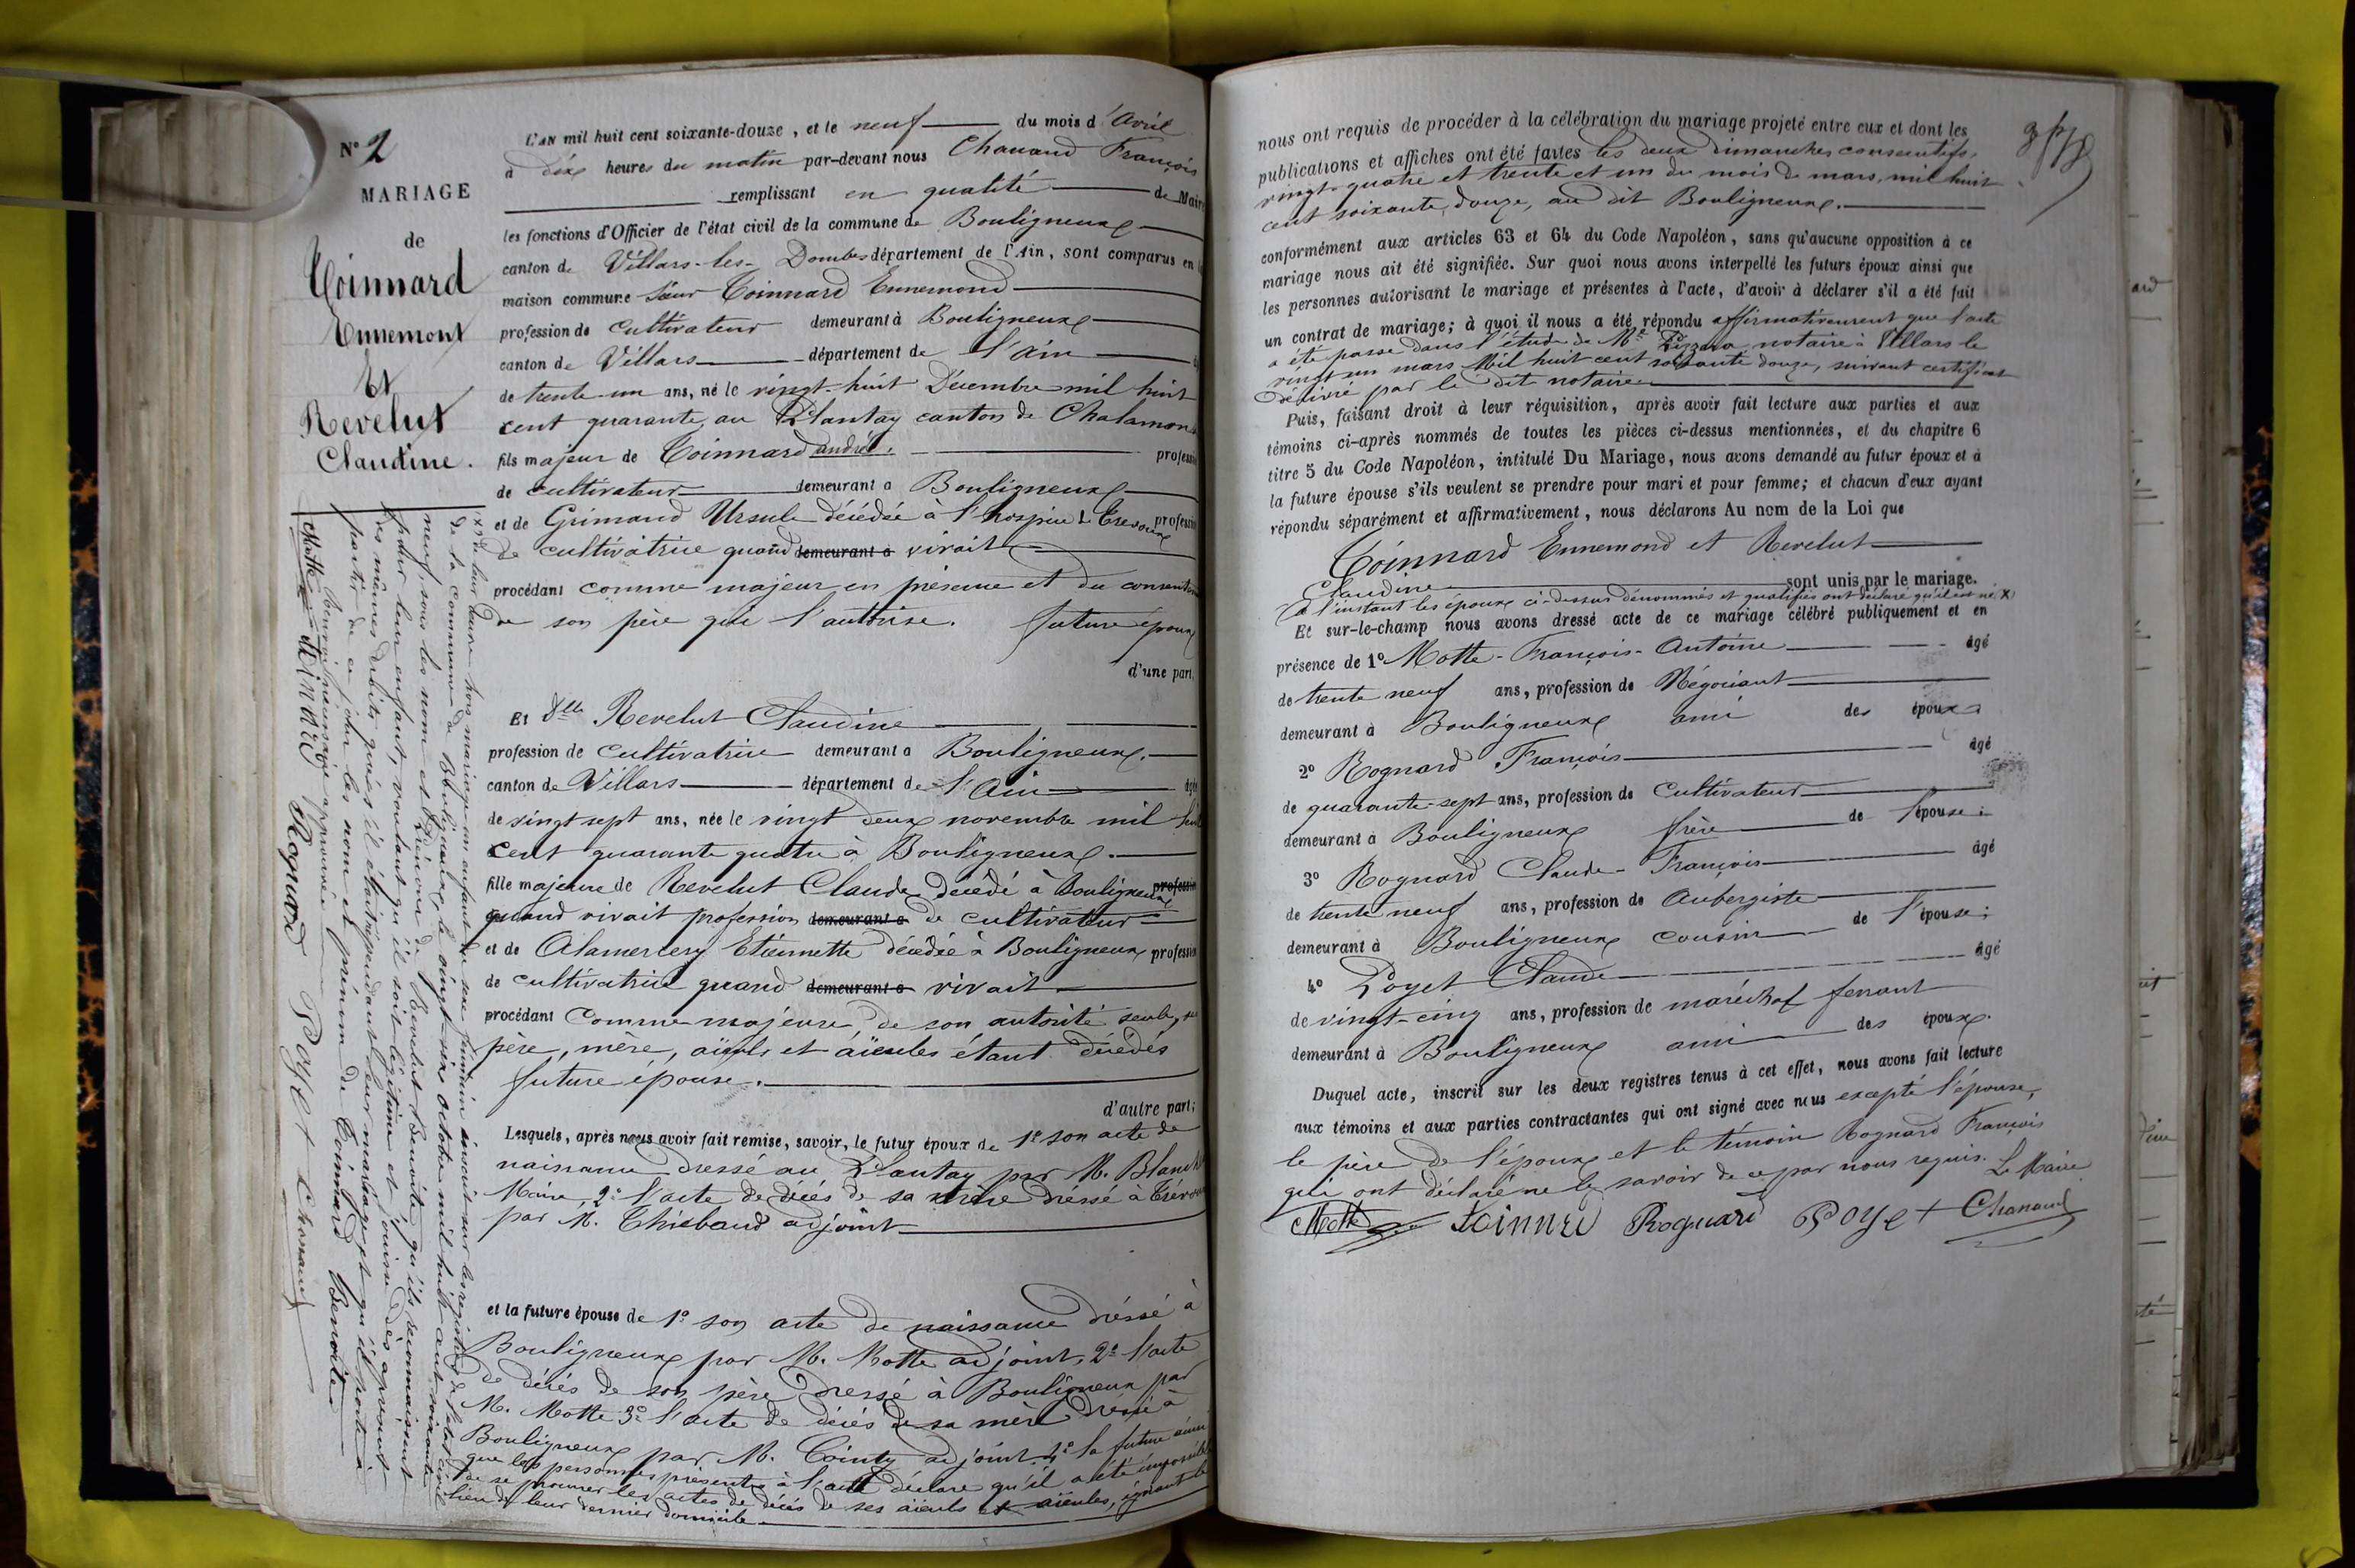 N° 2
MARIAGE
de
Toinnard
Ennemont
Et
Revelut
Claudine.
L'AN mil huit cent soixante-douze, et le neuf du mois d'Avril
à dix heures du matin par-devant nous Chanaud François
remplissant en qualité de Maire
les fonctions d'Officier de l'état civil de la commune de Bouligneux
canton de Villars-les-Dombes département de l'Ain, sont comparus en la
maison commune Sieur Toinnard Ennemond
profession de cultivateur demeurant à Bouligneux
canton de Villars département de l'Ain
de trente-un ans, né le vingt-huit Décembre mil huit
cent quarante au Plantay canton de Chalamont
fils majeur de Toinnard andré, profession
de cultivateur demeurant à Bouligneux
et de Grimaud Ursule décédée à l'hospice de Trevoux profession
de cultivatrice quand demeurant à vivait
procédant comme majeur en présence et du consentement
de son père qui l'autorise. futur époux
d'une part,
Et Dlle Revelut Claudine
profession de cultivatrice demeurant à Bouligneux.
canton de Villars département de l'Ain âgée
de vingt sept ans, née le vingt deux novembre mil huit
cent quarante quatre à Bouligneux.
fille majeure de Revelut Claude décédé à Bouligneux profession
quand vivait profession demeurant à de cultivateur
et de Alamercery Etiennette décédée à Bouligneux profession
de cultivatrice quand demeurant à vivait
procédant comme majeure, de son autorité seule, ses
père, mère, aïeuls et aïeules étant décédés
future épouse.
d'autre part;
Lesquels, après nous avoir fait remise, savoir, le futur époux de 1° son acte de
naissance dressé au Plantay par M. Blanch
Maire, 2° l'acte de décés de sa mère dressé à Trévoux
par M. Thiebaud adjoint
et la future épouse de 1° son acte de naissance dréssé à
Bouligneux par M. Motte adjoint, 2° l'acte
de décés de son père dressé à Bouligneux par
M. Motte 3° l'acte de décés de sa mère dréssé à
Bouligneux par M. Cointy adjoint 4° la future ainsi
que les personnes présentes à l'acte déclare qu'il a été impossible
de se procurer les actes de décés de ses aïeuls et aïeules, ignorant le
lieu de leur dernier domicile
(x) de leur deux hors mariage un enfant du sexe féminin inscrit sur les registres de l'état civil
de la commune de Bouligneux, le vingt-trois octobre mil huit cent soixante
neuf, sous les nom et prénom de Revelut Benoite, qu'ils reconnaissent
pour leur enfant, voulant qu'il soit légitime et jouisse dès à présent
des mêmes droits que s'il était né pendant leur mariage et qu'il porte à
partir de ce jour les nom et prénom de Toinnard Benoite
Renvoi nécessaire approuvé
Motte toinard Rognard Poyet Chanaud
nous ont requis de procéder à la célébration du mariage projeté entre eux et dont les
publications et affiches ont été faites les deux dimanches consécutifs,
vingt-quatre et trente et un du mois de mars, mil huit
cent soixante, douze, au dit Bouligneux.
conformément aux articles 63 et 64 du Code Napoléon, sans qu'aucune opposition à ce
mariage nous ait été signifiée. Sur quoi nous avons interpellé les futurs époux ainsi que
les personnes autorisant le mariage et présentes à l'acte, d'avoir à déclarer s'il a été fait
un contrat de mariage; à quoi il nous a été répondu affirmativement que l'acte
a été passé dans l'étude de Me notaire à Villars le
vingt un mars Mil huit cent soixante douze, suivant certificat
délivré par le dit notaire
Puis, faisant droit à leur réquisition, après avoir fait lecture aux parties et aux
témoins ci-après nommés de toutes les pièces ci-dessus mentionnées, et du chapitre 6
titre 5 du Code Napoléon, intitulé Du Mariage, nous avons demandé au futur époux et à
la future épouse s'ils veulent se prendre pour mari et pour femme; et chacun d'eux ayant
répondu séparément et affirmativement, nous déclarons Au nom de la Loi que
Toinnard Ennemond et Revelut
Claudine sont unis par le mariage.
(à l'instant les époux ci-dessus dénommés et qualifiés ont déclaré qu'il est né (x)
Et sur-le-champ nous avons dressé acte de ce mariage célébré publiquement et en
présence de 1° Motte-François-Antoine âgé
de trente neuf ans, profession de Négociant
demeurant à Bouligneux ami des époux
2° Rognard François âgé
de quarante-sept ans, profession de Cultivateur
demeurant à Bouligneux frère de l'épouse;
3° Rognard Claude-François âgé
de trente neuf ans, profession de Aubergiste
demeurant à Bouligneux cousin de l'épouse;
4° Poyet Claude âgé
de vingt-cinq ans, profession de maréchal ferrant
demeurant à Bouligneux ami des époux.
Duquel acte, inscrit sur les deux registres tenus à cet effet, nous avons fait lecture
aux témoins et aux parties contractantes qui ont signé avec nous excepté l'épouse,
le père de l'époux et le témoin Rognard François
qui ont déclaré ne le savoir de ce par nous requis. Le Maire
Motte toinnrd Rognard Poyet Chanaud